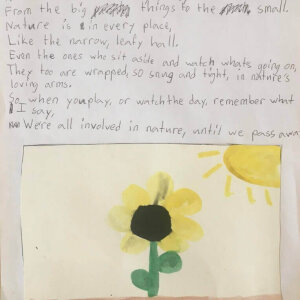 From the big things to the small.
Nature is in every place,
Like the narrow, leafy hall.
Even the ones who sit aside and watch whats going on,
They too are wrapped, so snug and tight, in nature's
loving arms.
So when you play, or watch the day, remember what
I say,
Were all involved in nature, until we pass away